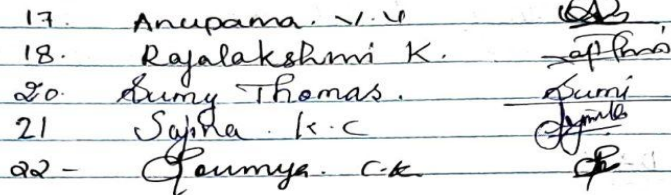 17. Anupama. V.V
18. Rajalakshmi K.
20. Sumy Thomas. Sumi
21 Sajna. K.C
22 - Soumya. C.K